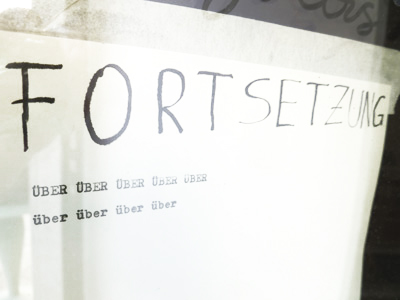 FORTSETZUNG
ÜBER ÜBER ÜBER ÜBER ÜBER
über über über über